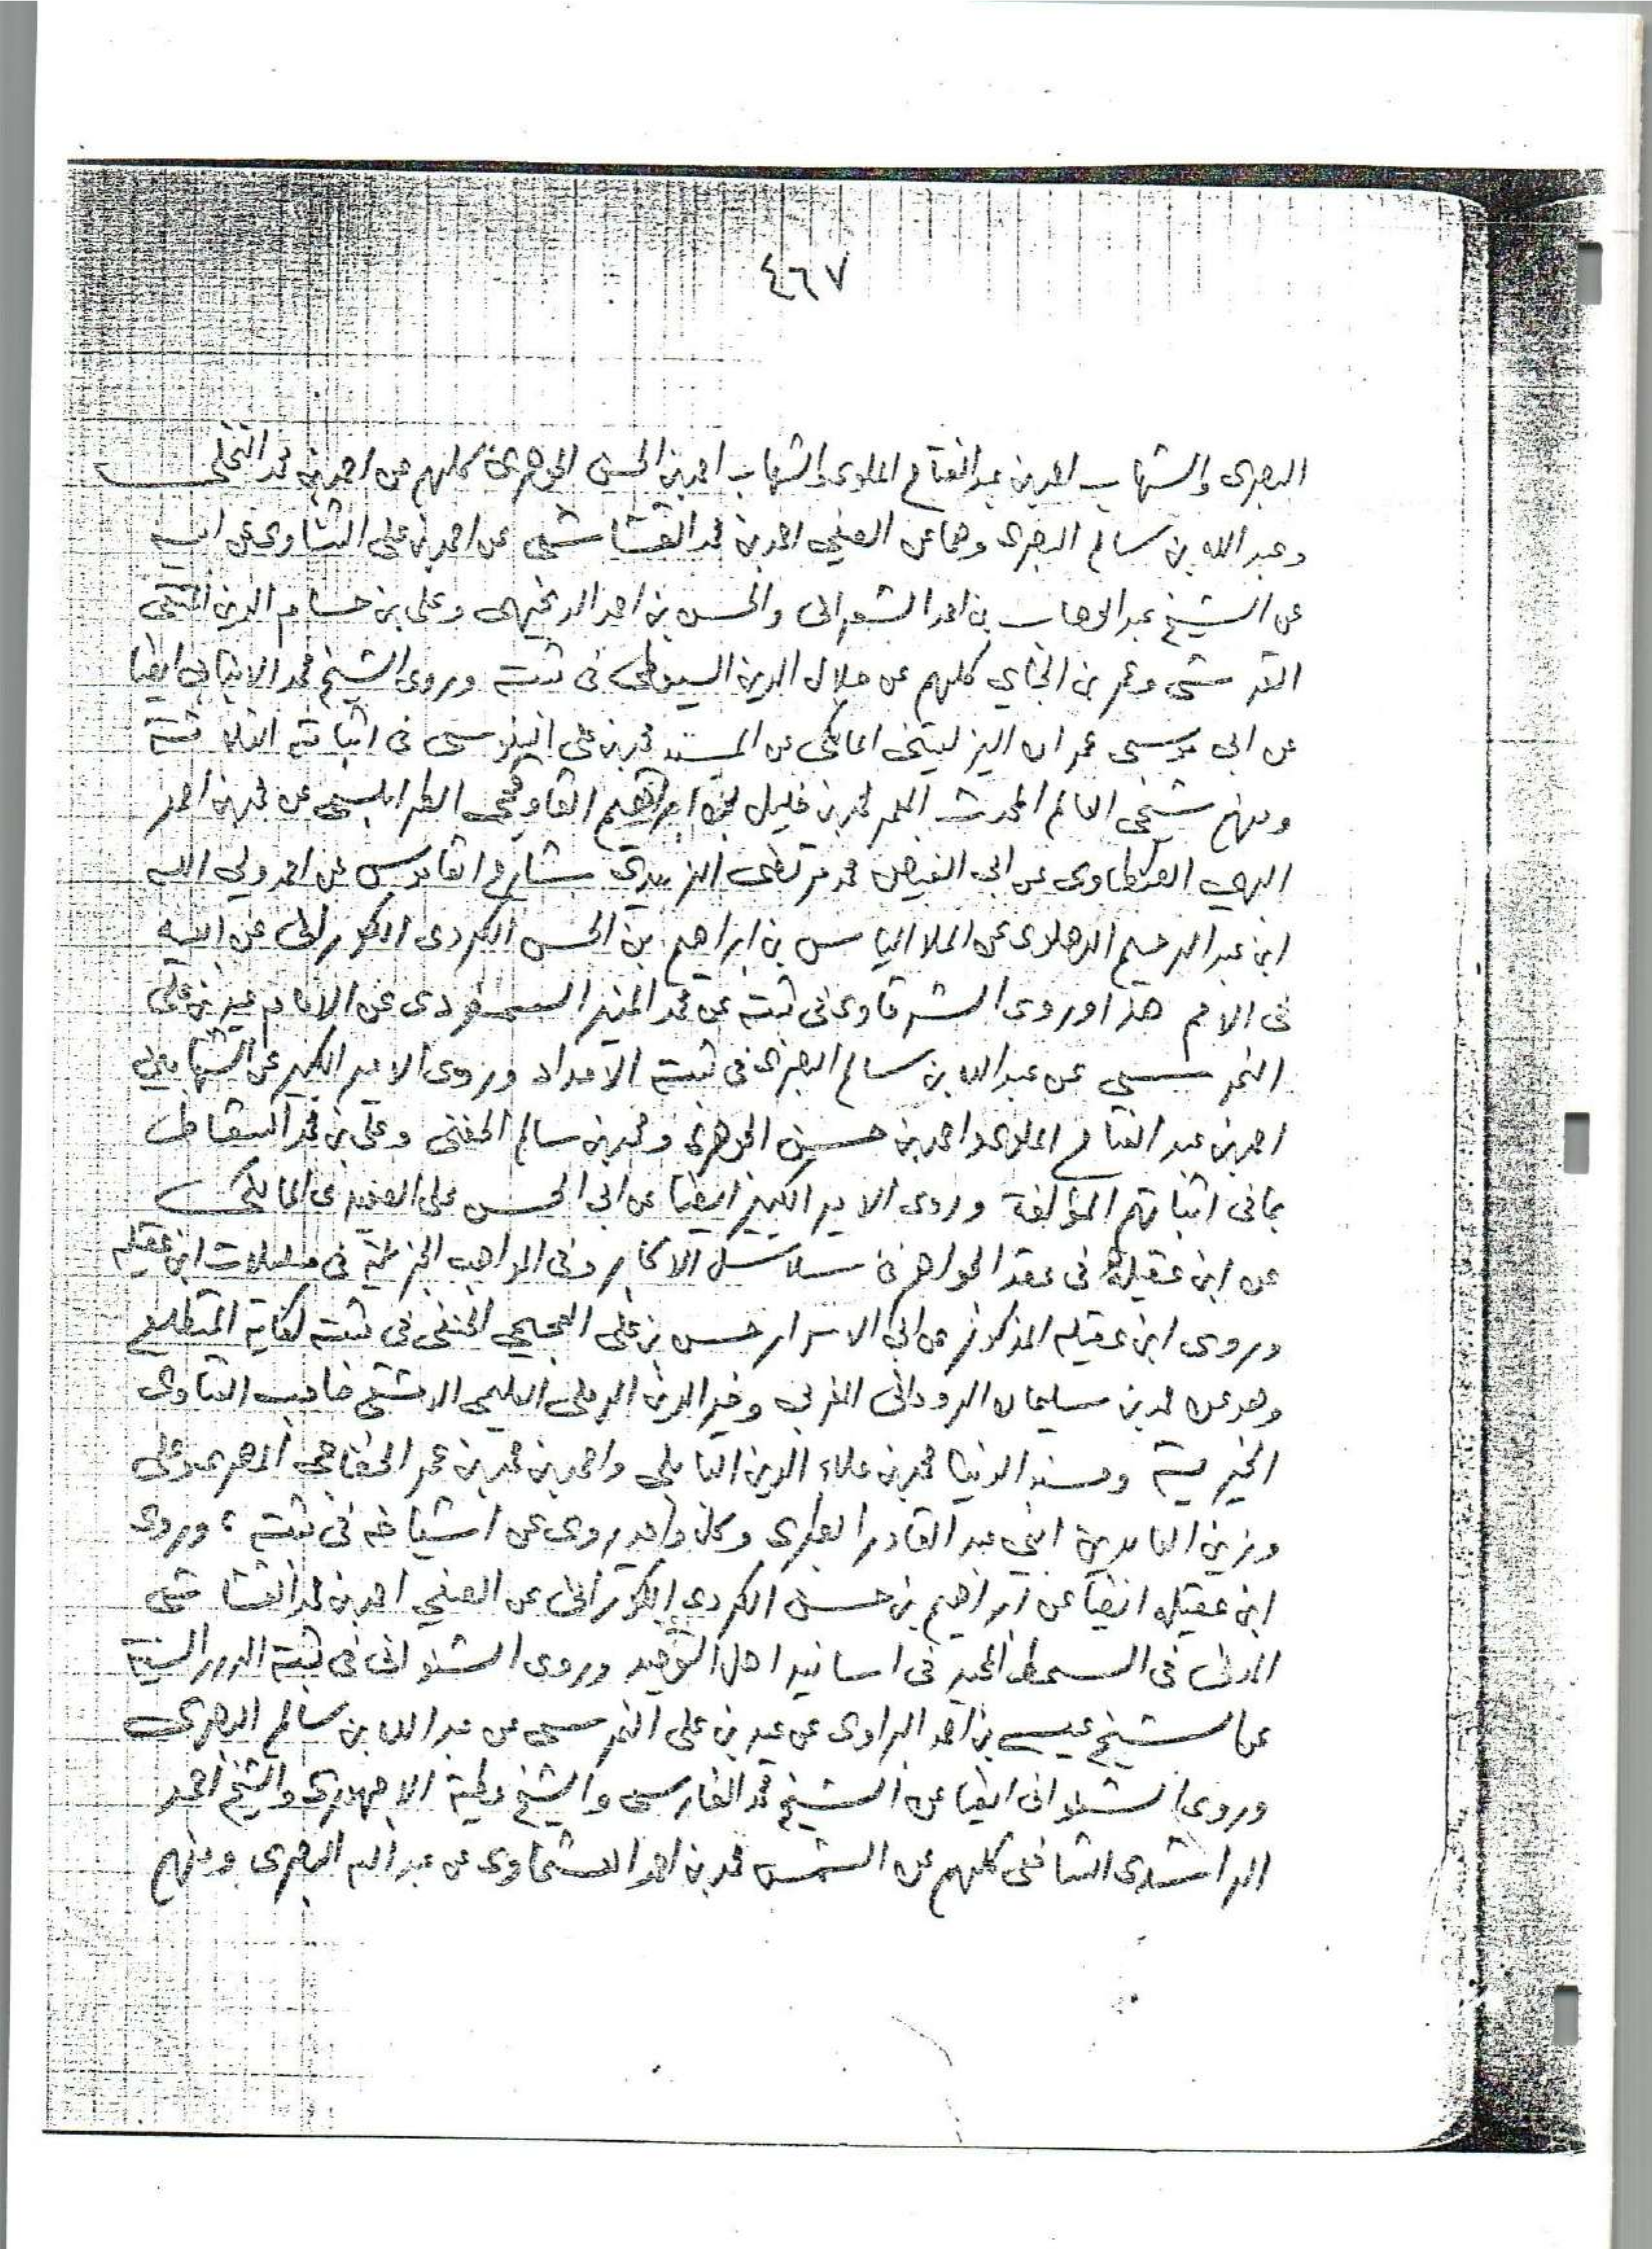 ٤٦٧
البصرى والشهاب احمد بن عبد الفتاح الملوى والشهاب احمد بن الحسن الجوهرى كلهم عن احمد بن محمد النخلى
وعبد الله بن سالم البصرى وهما عن الصفي احمد بن محمد القشاشى عن احمد بن على الشناوى عن ابيه
عن الشيخ عبد الوهاب بن احمد الشعرانى والحسن بن احمد الدنجيهى وعلى بن حسام الدين المتقى
القرشى وعمر بن الجاي كلهم عن جلال الدين السيوطى فى ثبته وروى الشيخ محمد الانبابى ايضا
عن ابى موسى عمران اليزليتنى المالكى عن المسند محمد بن على السنوسى فى اثباته الثلاثة
ومنهم شيخى العالم المحدث المعمر محمد بن خليل بن ابراهيم القاوقجى الطرابلسى عن محمد بن احمد
البهي الطنطاوى عن ابى الفيض محمد مرتضى الزبيدى شارح القاموس عن احمد ولي الله
ابن عبد الرحيم الدهلوى عن الملا الياس بن ابراهيم بن الحسن الكردى الكورانى عن ابيه
فى الامم هذا وروى الشرقاوى فى ثبته عن محمد المنير السمنودى عن الامام عيد بن على
النمرسي عن عبد الله بن سالم البصرى فى ثبته الامداد وروى الامير الكبير عن الشهابين
احمد بن عبد الفتاح الملوى واحمد بن حسن الجوهرى ومحمد بن سالم الحفنى وعلى بن محمد السقاط
بما فى اثباتهم المؤلفة وروى الامير الكبير ايضا عن ابى الحسن على الصعيدى المالكى
عن ابن عقيلة فى عقد الجواهر فى سلاسل الاكابر وفى المواهب الجزيلة فى مسلسلات ابن عقيله
وروى ابن عقيله المذكور عن ابى الاسرار حسن بن على العجيمي الحنفى فى ثبته كفاية المتطلع
وهو عن محمد بن سليمان الرودانى المغربي وخير الدين الرملى العليمى الدمشقى صاحب الفتاوى
الخيرية ومسند الدنيا محمد بن علاء الدين البابلى واحمد بن محمد بن عمر الخفاجى المصرى وعلى
وزين العابدين ابني عبد القادر الطبرى وكل واحد روى عن اشياخه فى ثبته ؛ وروى
ابن عقيله ايضا عن ابراهيم بن حسن الكردى الكورانى عن الصفي احمد بن محمد القشاشى
المدنى فى السمط المجيد فى اسانيد اهل التوحيد وروى الشنوانى فى ثبته الدرر السنية
عن الشيخ عيسى بن احمد البراوى عن عيد بن على النمرسى عن عبد الله بن سالم البصرى
وروى الشنوانى ايضا عن الشيخ محمد الفارسى والشيخ عطية الاجهورى والشيخ احمد
الراشدى الشافعى كلهم عن الشمس محمد بن احمد العشماوى عن عبد الله البصرى ومنهم